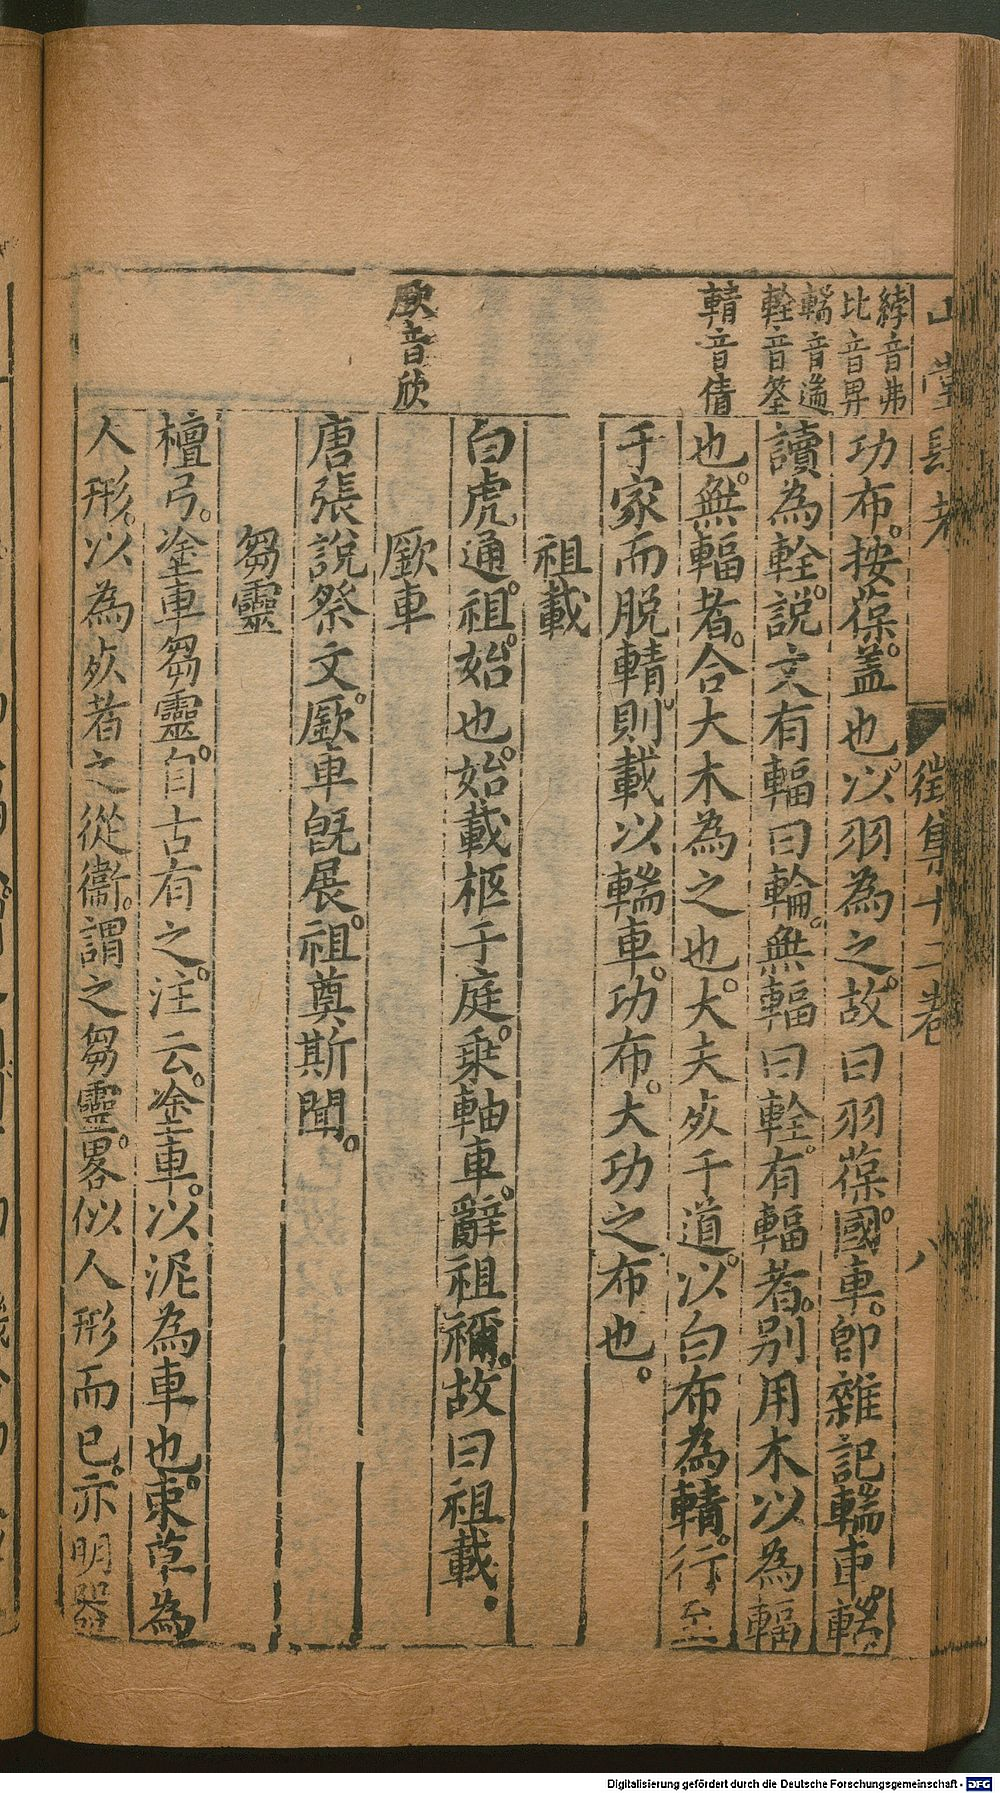 山堂肆考 徵集十二卷 八
綍音弗
比音畀
輲音遄
輇音筌
輤音倩
廞音欣
功布。按葆。蓋也。以羽為之。故曰羽葆。國車。卽雜記輲車。輲
讀為輇。説文有輻曰輪。無輻曰輇。有輻者。别用木以為輻
也。無輻者。合大木為之也。大夫㱙于道。以白布為輤。行至
于家而脱輤。則載以輲車。功布。大功之布也。
祖載
白虎通。祖。始也。始載柩于庭。乗軸車。辭祖禰。故曰祖載。
廞車
唐張説祭文。廞車旣展。祖奠斯聞。
芻靈
檀弓。塗車芻靈。自古有之。注云。塗車。以泥為車也。束草為
人形。以為㱙者之從衞。謂之芻靈。畧似人形而已。亦明器
Digitalisierung gefördert durch die Deutsche Forschungsgemeinschaft - DFG